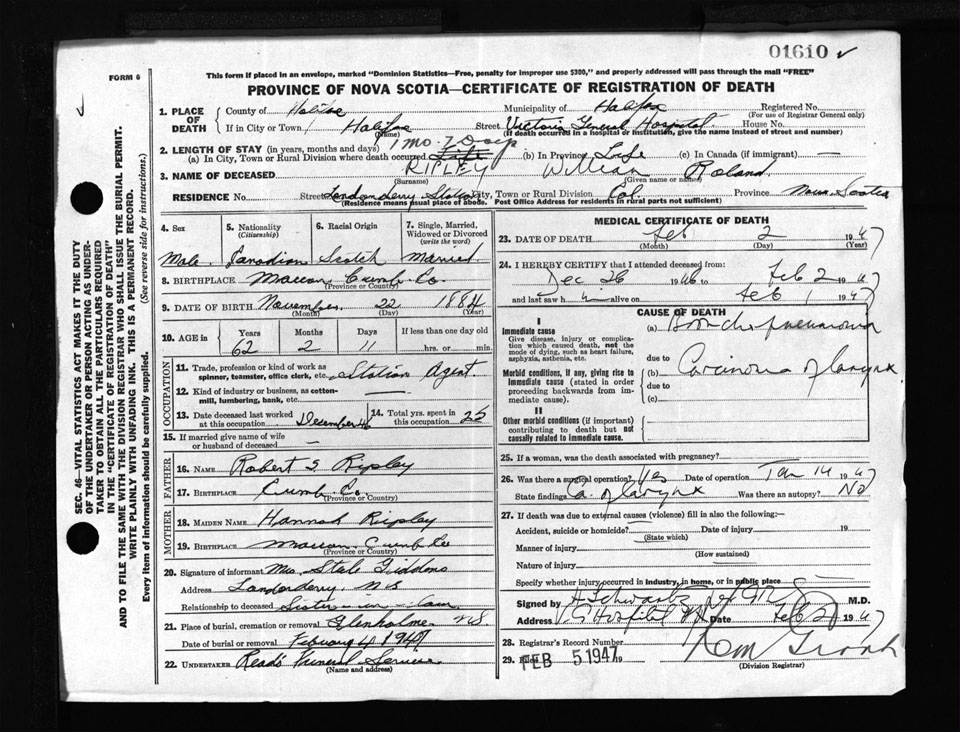 01610 ✓
FORM 6
This form if placed in an envelope, marked "Dominion Statistics—Free, penalty for improper use $300," and properly addressed will pass through the mail "FREE"
PROVINCE OF NOVA SCOTIA—CERTIFICATE OF REGISTRATION OF DEATH
SEC. 46—VITAL STATISTICS ACT MAKES IT THE DUTY
OF THE UNDERTAKER OR PERSON ACTING AS UNDER-
TAKER TO OBTAIN ALL THE PARTICULARS REQUIRED
IN THE "CERTIFICATE OF REGISTRATION OF DEATH"
AND TO FILE THE SAME WITH THE DIVISION REGISTRAR WHO SHALL ISSUE THE BURIAL PERMIT.
WRITE PLAINLY WITH UNFADING INK. THIS IS A PERMANENT RECORD.
Every item of information should be carefully supplied. (See reverse side for instructions.)
1. PLACE OF DEATH County of Halifax Municipality of Halifax Registered No.
(For use of Registrar General only)
If in City or Town Halifax Street Victoria General Hospital House No.
(Name) (If death occurred in a hospital or institution, give the name instead of street and number)
2. LENGTH OF STAY (in years, months and days) 1 mo. 7 Days
(a) In City, Town or Rural Division where death occurred Life (b) In Province Life (c) In Canada (if immigrant) —
3. NAME OF DECEASED RIPLEY William Roland
(Surname) (Given name or names)
RESIDENCE No. Street Londonderry Station City, Town or Rural Division Col. Province Nova Scotia
(Residence means usual place of abode. Post Office Address for residents in rural parts not sufficient)
4. Sex 5. Nationality (Citizenship) 6. Racial Origin 7. Single, Married, Widowed or Divorced (write the word)
Male Canadian Scotch Married
8. BIRTHPLACE Maccan Cumb. Co.
(Province or Country)
9. DATE OF BIRTH November 22 1884
(Month) (Day) (Year)
10. AGE in Years Months Days If less than one day old
62 2 11 hrs. or min.
OCCUPATION
11. Trade, profession or kind of work as spinner, teamster, office clerk, etc. Station Agent
12. Kind of industry or business, as cotton-mill, lumbering, bank, etc.
13. Date deceased last worked at this occupation December 46 14. Total yrs. spent in this occupation 25
15. If married give name of wife or husband of deceased —
FATHER
16. NAME Robert S. Ripley
17. BIRTHPLACE Cumb Co.
(Province or Country)
MOTHER
18. MAIDEN NAME Hannah Ripley
19. BIRTHPLACE Maccan Cumb Co
(Province or Country)
20. Signature of informant Mrs.
Address Londonderry, N S
Relationship to deceased Sister-in-law
21. Place of burial, cremation or removal Glenholme N S
Date of burial or removal February 4 1947
22. UNDERTAKER Read's Funeral Service
(Name and address)
MEDICAL CERTIFICATE OF DEATH
23. DATE OF DEATH Feb 2 1947
(Month) (Day) (Year)
24. I HEREBY CERTIFY that I attended deceased from:
Dec 26 1946 to Feb 2 1947
and last saw h alive on Feb 1 1947
CAUSE OF DEATH
I
Immediate cause
Give disease, injury or complication which caused death, not the mode of dying, such as heart failure, asphyxia, asthenia, etc.
(a) Bronchopneumonia
due to
Morbid conditions, if any, giving rise to immediate cause (stated in order proceeding backwards from immediate cause).
(b) Carcinoma of larynx
due to
(c)
II
Other morbid conditions (if important) contributing to death but not causally related to immediate cause.
25. If a woman, was the death associated with pregnancy?
26. Was there a surgical operation? Yes Date of operation Jan 14 1947
State findings Ca. of larynx Was there an autopsy? No
27. If death was due to external causes (violence) fill in also the following:—
Accident, suicide or homicide? Date of injury 19
(State which)
Manner of injury
(How sustained)
Nature of injury
Specify whether injury occurred in industry, in home, or in public place
Signed by H Schwartz M.D.
Address V G Hospital Date Feb 2 1947
28. Registrar's Record Number
29. FEB 5 1947 19
(Division Registrar)